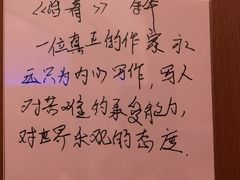 《活着》 余华
一位真正的作家永
远只为内心写作，写人
对苦难的承受能力，
对世界乐观的态度.